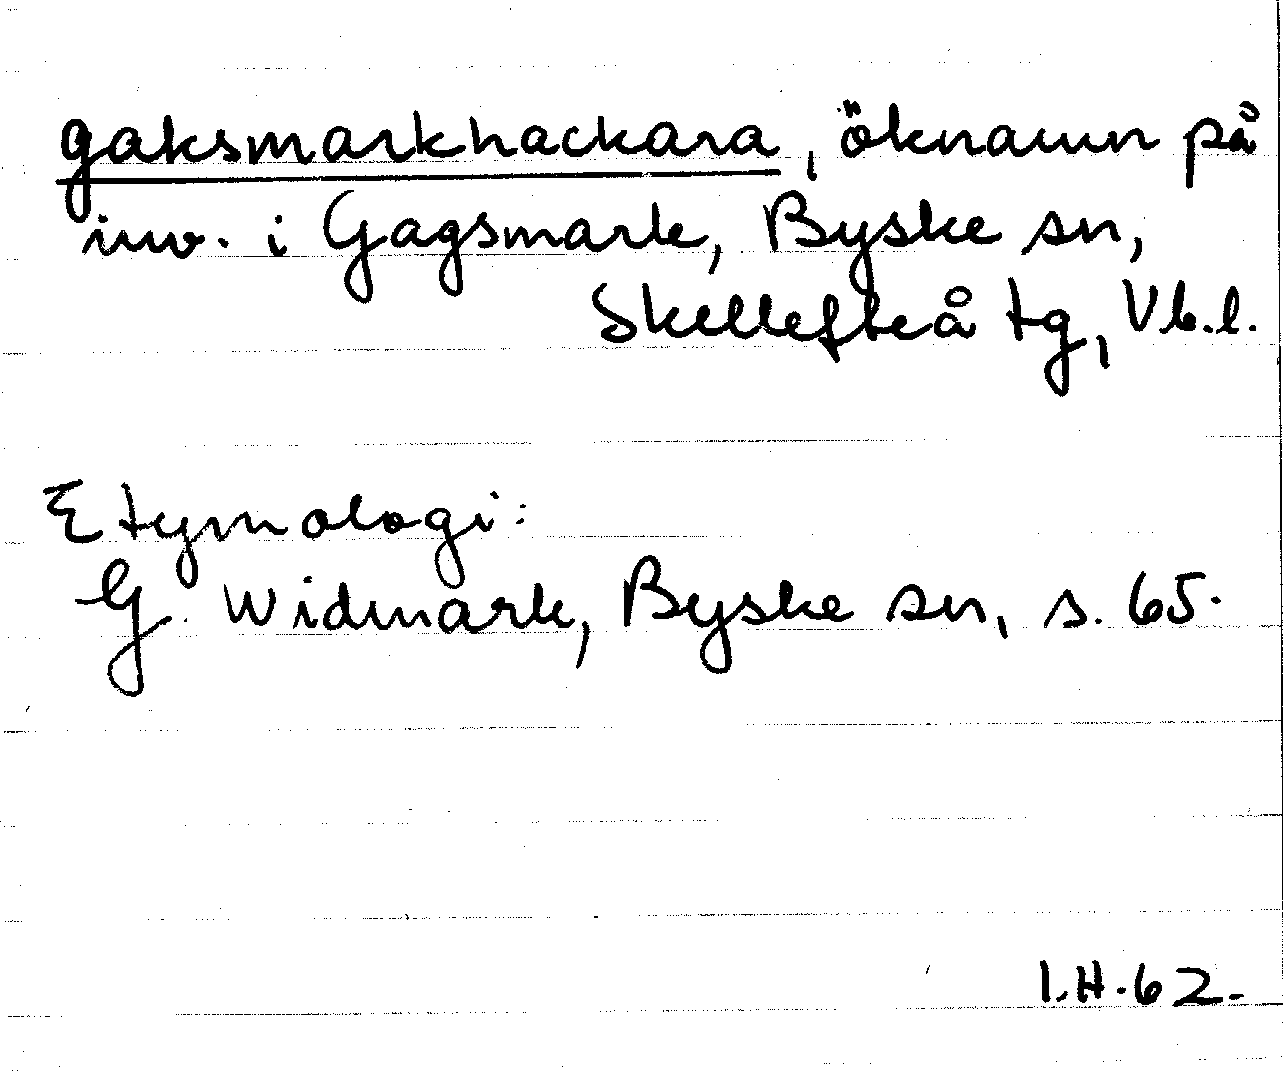 gaksmarkhackara, öknamn på
inv. i Gagsmark, Byske sn,
Skellefteå tg, Vb.l.
Etymologi:
G. Widmark, Byske sn, s. 65.
I.H.62.